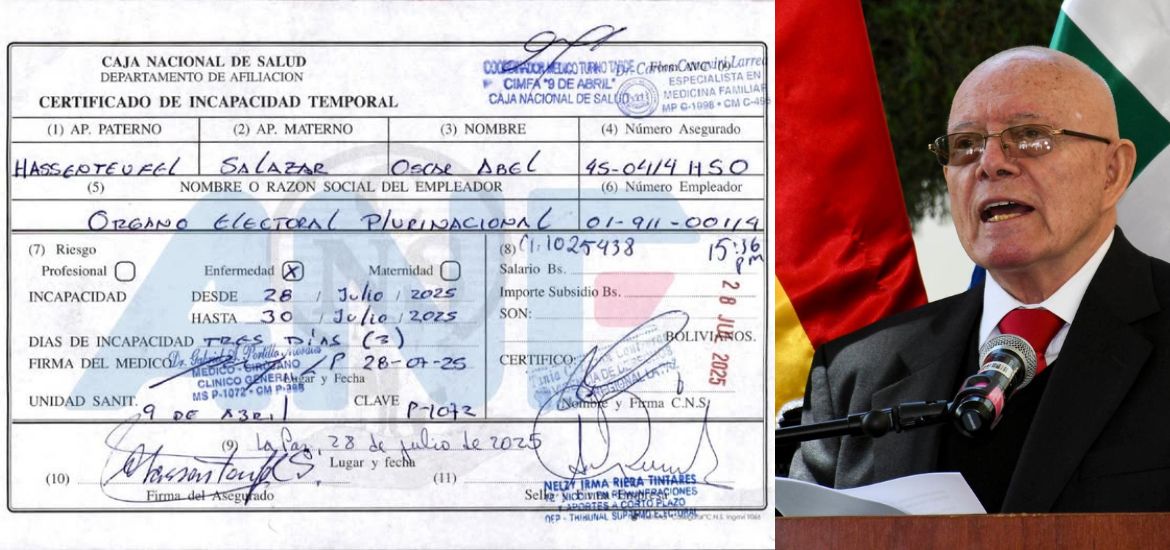 CAJA NACIONAL DE SALUD
DEPARTAMENTO DE AFILIACION
CERTIFICADO DE INCAPACIDAD TEMPORAL
COORDINADOR MEDICO TURNO TARDE
CIMFA "9 DE ABRIL"
CAJA NACIONAL DE SALUD
ESPECIALISTA EN
MEDICINA FAMILIAR
(1) AP. PATERNO (2) AP. MATERNO (3) NOMBRE (4) Número Asegurado
HASSENTEUFEL SALAZAR OSCAR ABEL 45-0414 HSO
(5) NOMBRE O RAZON SOCIAL DEL EMPLEADOR (6) Número Empleador
ORGANO ELECTORAL PLURINACIONAL 01-911-00114
(7) Riesgo
Profesional Enfermedad X Maternidad
INCAPACIDAD DESDE 28 / Julio / 2025
HASTA 30 / Julio / 2025
DIAS DE INCAPACIDAD TRES DIAS (3)
FIRMA DEL MEDICO L/P 28-07-25
MEDICO - CIRUJANO
CLINICO GENERAL
Lugar y Fecha
UNIDAD SANIT. 9 DE ABRIL CLAVE P-1072
(8) CI: 1025438 15:36 pm
Salario Bs.
Importe Subsidio Bs.
SON:
BOLIVIANOS.
28 JUL 2025
CERTIFICO:
Nombre y Firma C.N.S.
(9) La Paz, 28 de julio de 2025
Lugar y fecha
(10) (11)
Firma del Asegurado
NELZY IRMA RIERA TINTARES
Y APORTES A CORTO PLAZO
OEP - TRIBUNAL SUPREMO ELECTORAL
ANF